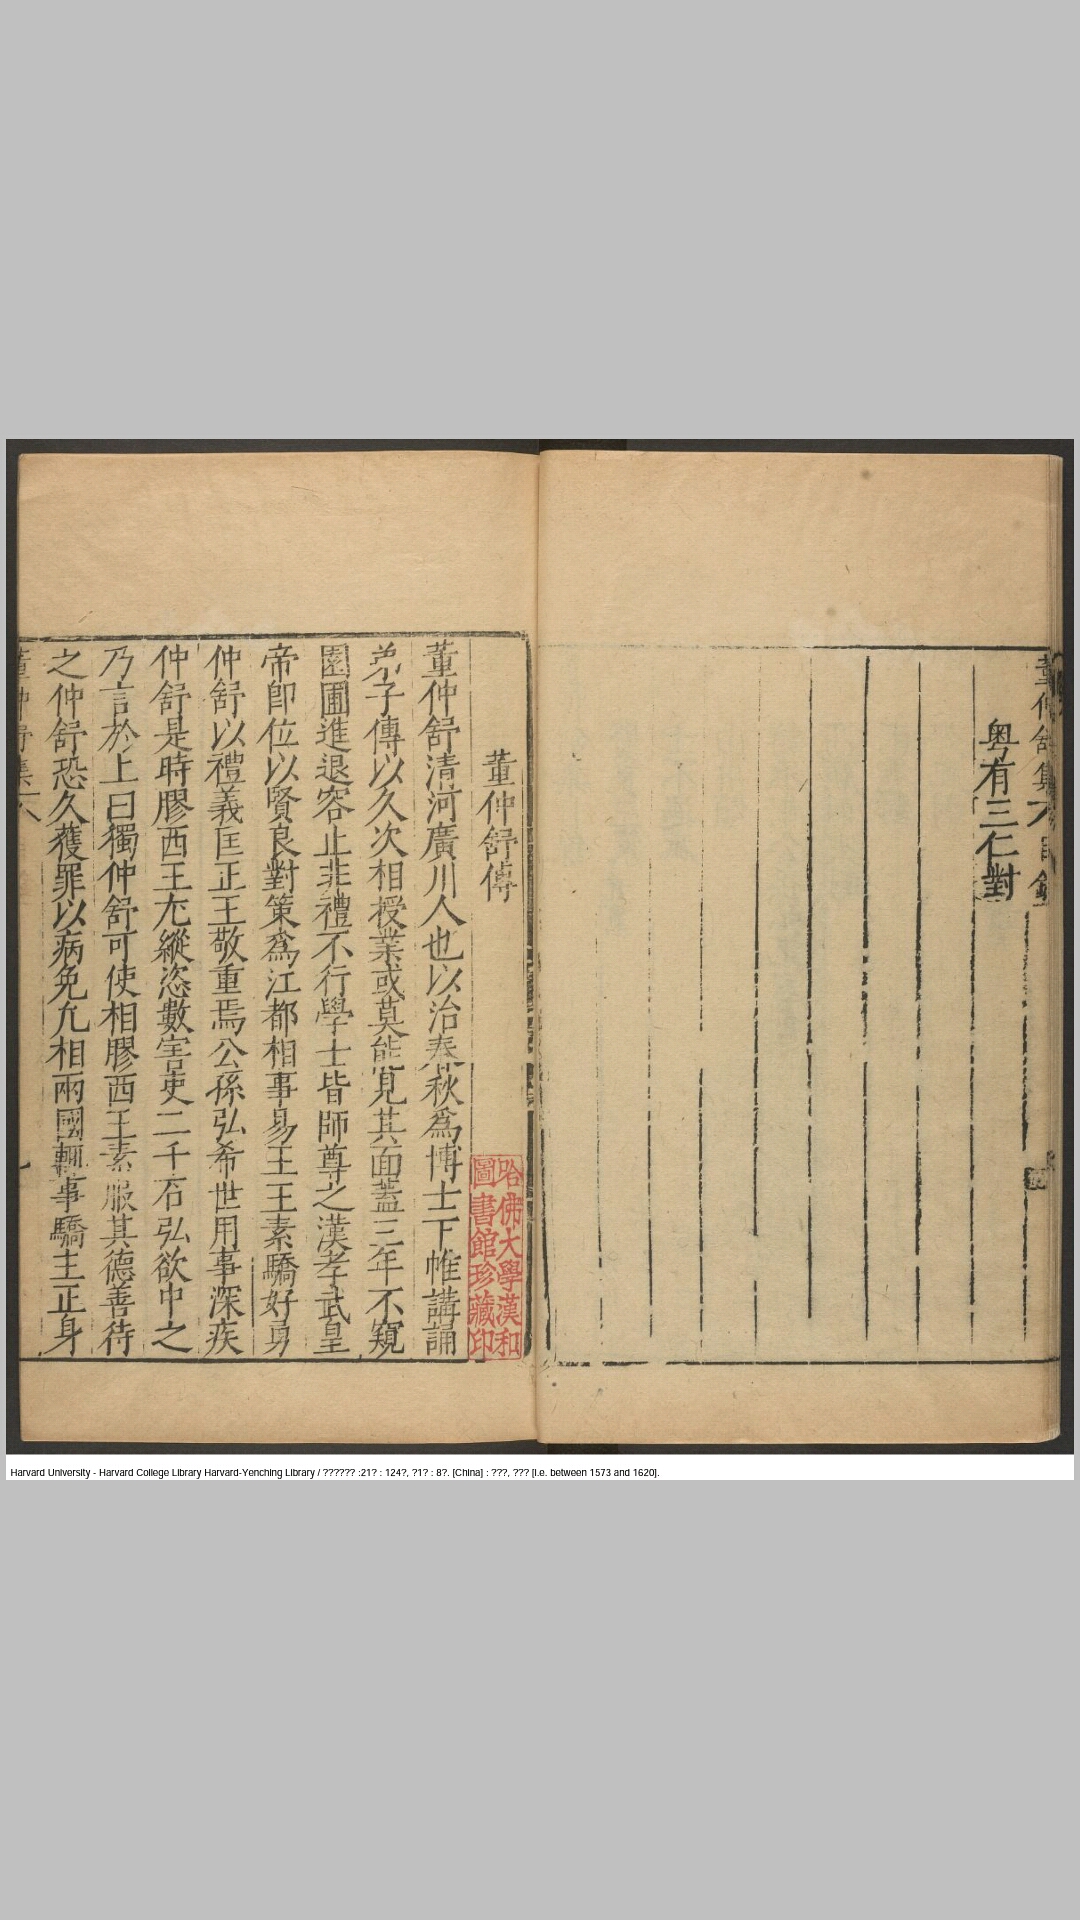 董仲舒集 目錄
粤有三仁對
董仲舒傳
哈佛大學漢和
圖書館珍藏印
董仲舒清河廣川人也以治春秋爲博士下帷講誦
弟子傳以久次相授業或莫能見其面蓋三年不窺
園圃進退容止非禮不行學士皆師尊之漢孝武皇
帝卽位以賢良對策爲江都相事易王王素驕好勇
仲舒以禮義匡正王敬重焉公孫弘希世用事深疾
仲舒是時膠西王尤縱恣數害吏二千石弘欲中之
乃言於上曰獨仲舒可使相膠西王素服其德善待
之仲舒恐久獲罪以病免凢相兩國輒事驕主正身
董仲舒集
Harvard University - Harvard College Library Harvard-Yenching Library / ?????? :21? : 124?, ?1? : 8?. [China] : ???, ??? [i.e. between 1573 and 1620].